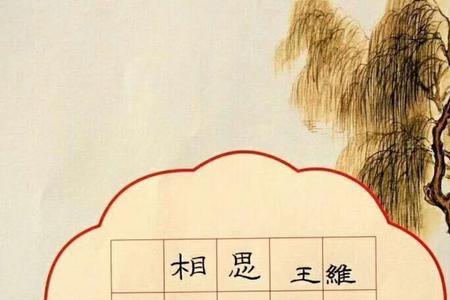 相思 王維